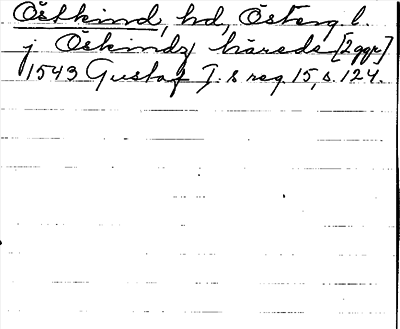 Östkind, hd, Österg. l.
j Öskindz härede [2 ggr]
1543 Gustaf I:s reg. 15, s. 124.